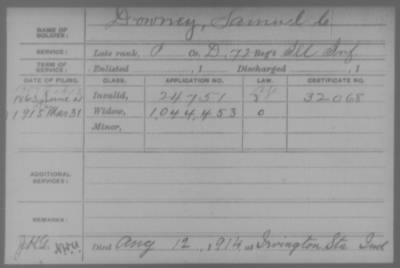 NAME OF SOLDIER: Downey, Samuel C
SERVICE: Late rank, P Co. D, 72 Reg't Ill Inf
TERM OF SERVICE: Enlisted , 1 Discharged , 1
DATE OF FILING. CLASS. APPLICATION NO. LAW. CERTIFICATE NO.
1863 June Invalid, 24751 32068
1915 Mar 31 Widow, 1,044,453 0
Minor,
ADDITIONAL SERVICES:
REMARKS:
Died Aug 12, 1914, at Irvington Sta Ind